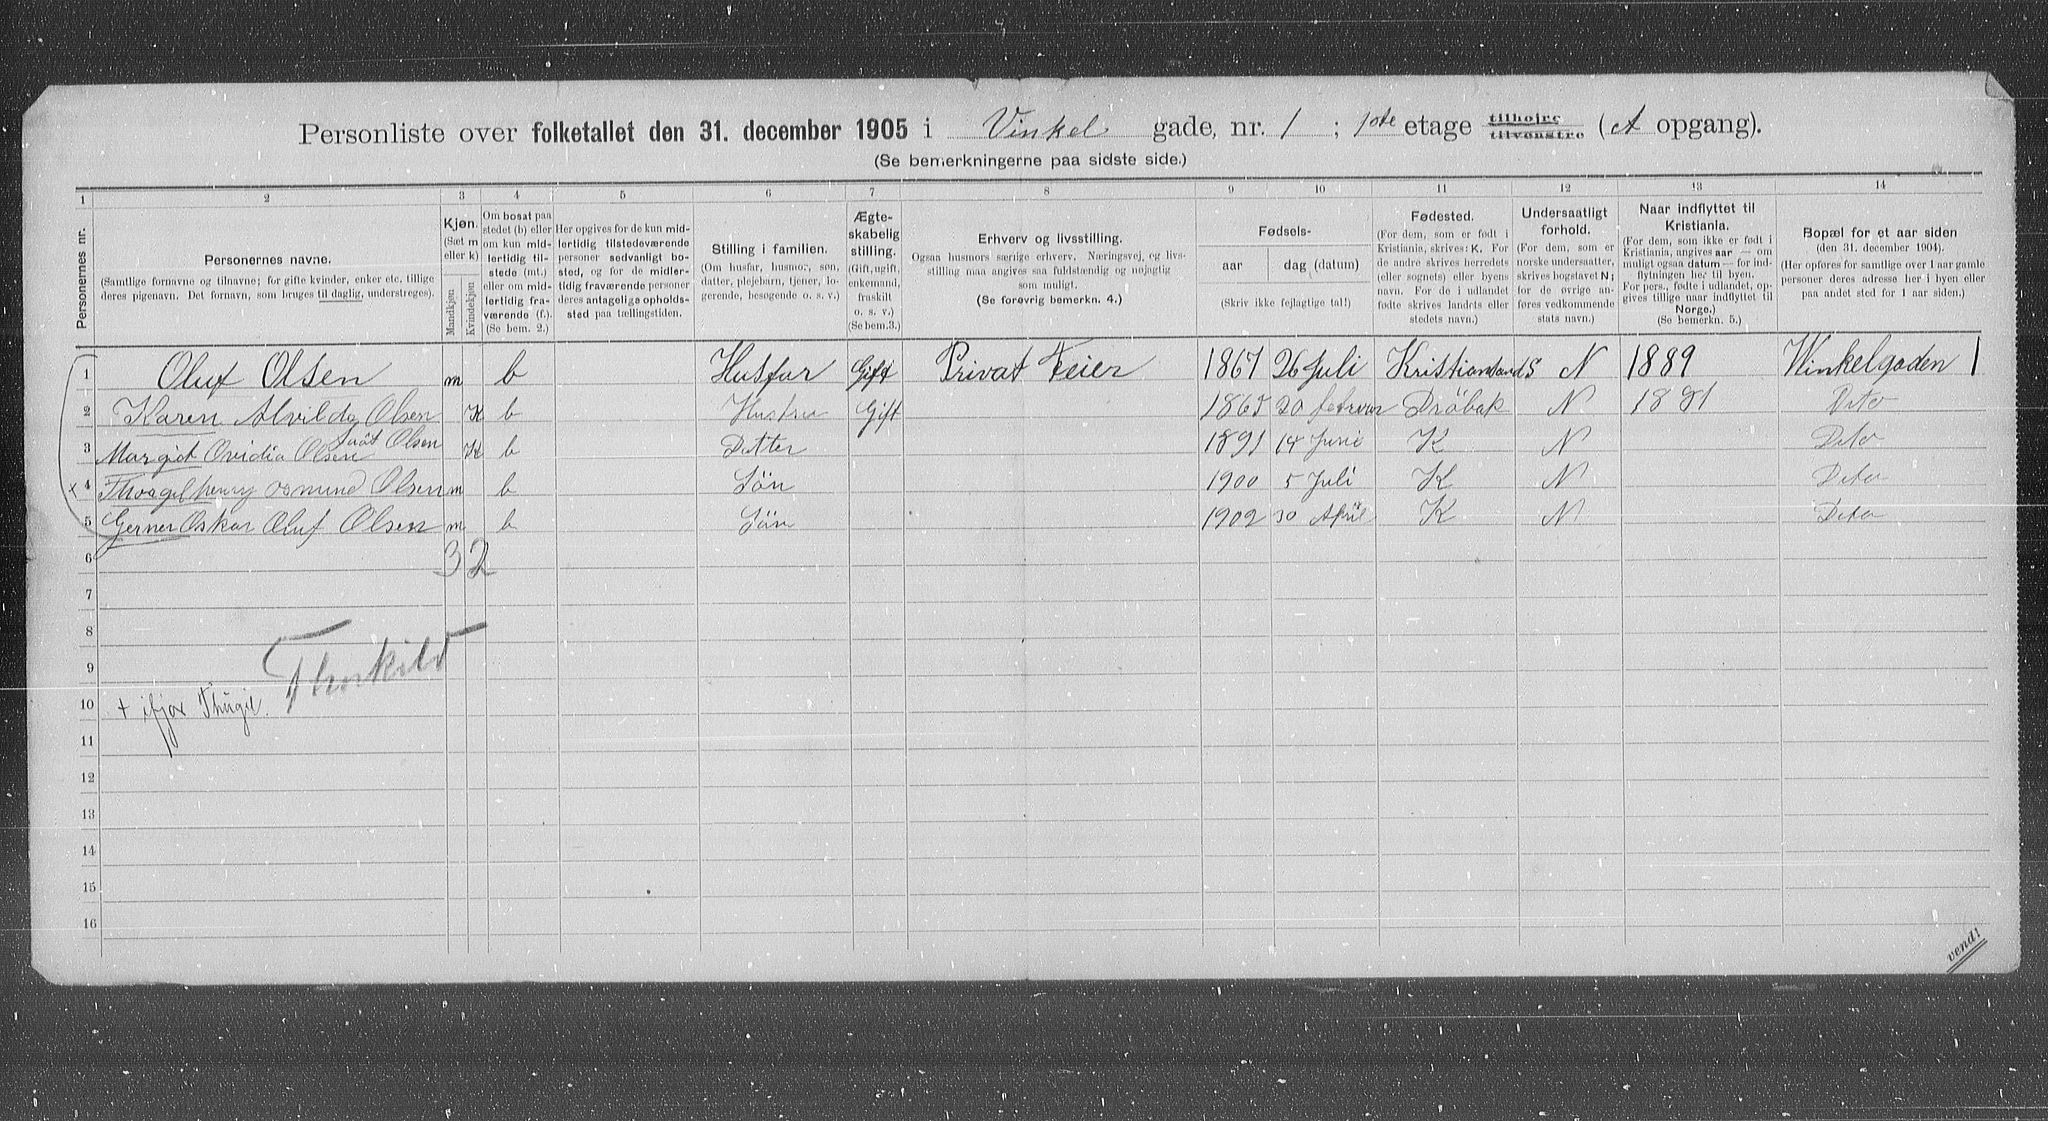 Personliste over folketallet den 31. december 1905 i Vinkel gade, nr. 1 ; 1ste etage tilhøire tilvenstre (A opgang).
(Se bemerkningerne paa sidste side.)
1 2 3 4 5 6 7 8 9 10 11 12 13 14
Personernes nr.
Personernes navne.
(Samtlige fornavne og tilnavne; for gifte kvinder, enker etc. tillige deres pigenavn. Det fornavn, som bruges til daglig, understreges).
Kjøn.
(Sæt m eller k)
Mandkjøn
Kvindekjøn
Om bosat paa stedet (b) eller om kun midlertidig tilstede (mt.) eller om midlertidig fraværende (f.). (Se bem. 2.)
Her opgives for de kun midlertidig tilstedeværende personer sedvanligt bosted, og for de midlertidig fraværende personer deres antagelige opholdssted paa tællingstiden.
Stilling i familien.
(Om husfar, husmor, søn, datter, plejebarn, tjener, logerende, besøgende o. s. v.)
Ægteskabelig stilling.
(Gift, ugift, enkemand, fraskilt o. s. v.) (Se bem. 3.)
Erhverv og livsstilling.
Ogsaa husmors særige erhverv, Næringsvej, og livsstilling maa angives saa fuldstændig og nøjagtig som muligt.
(Se forøvrig bemerkn. 4.)
Fødsels-
aar
dag (datum)
(Skriv ikke fejlagtige tal!)
Fødested.
(For dem, som er født i Kristiania, skrives: K. For de andre skrives herredets (eller sognets) eller byens navn. For de i udlandet fødte skrives landets eller stedets navn.)
Undersaatligt forhold.
(For dem, som er norske undersaatter, skrives bogstavet N; for de øvrige anføres vedkommende stats navn.)
Naar indflyttet til Kristiania.
(For dem, som ikke er født i Kristiania, angives aar — om muligt ogsaa datum — for indflytningen her til byen. For pers., fødte i udlandet, opgives tillige naar indflyttet til Norge.)
(Se bemerkn. 5.)
Bopæl for et aar siden
(den 31. december 1904).
(Her opføres for samtlige over 1 aar gamle personer deres adresse her i byen eller paa andet sted for 1 aar siden.)
1 Oluf Olsen m b Husfar Gift Privat Feier 1867 26 Juli Kristiansands N 1889 Winkelgaden 1
2 Karen Alvilda Olsen K b Hustru Gift 1865 20 februar Dröbak N 1881 Dito
Olsen
3 Margit Ovidia Olsen K b Datter 1891 14 Juni K N Dito
x 4 henry osmund Olsen m b Sön 1900 5 Juli K N Dito
5 Gerner Oskar Oluf Olsen m b Sön 1902 30 April K N Dito
6 3 2
7
8
Thorkild
9
10 + ifjor Thorgil.
11
12
13
14
15
16
vend!